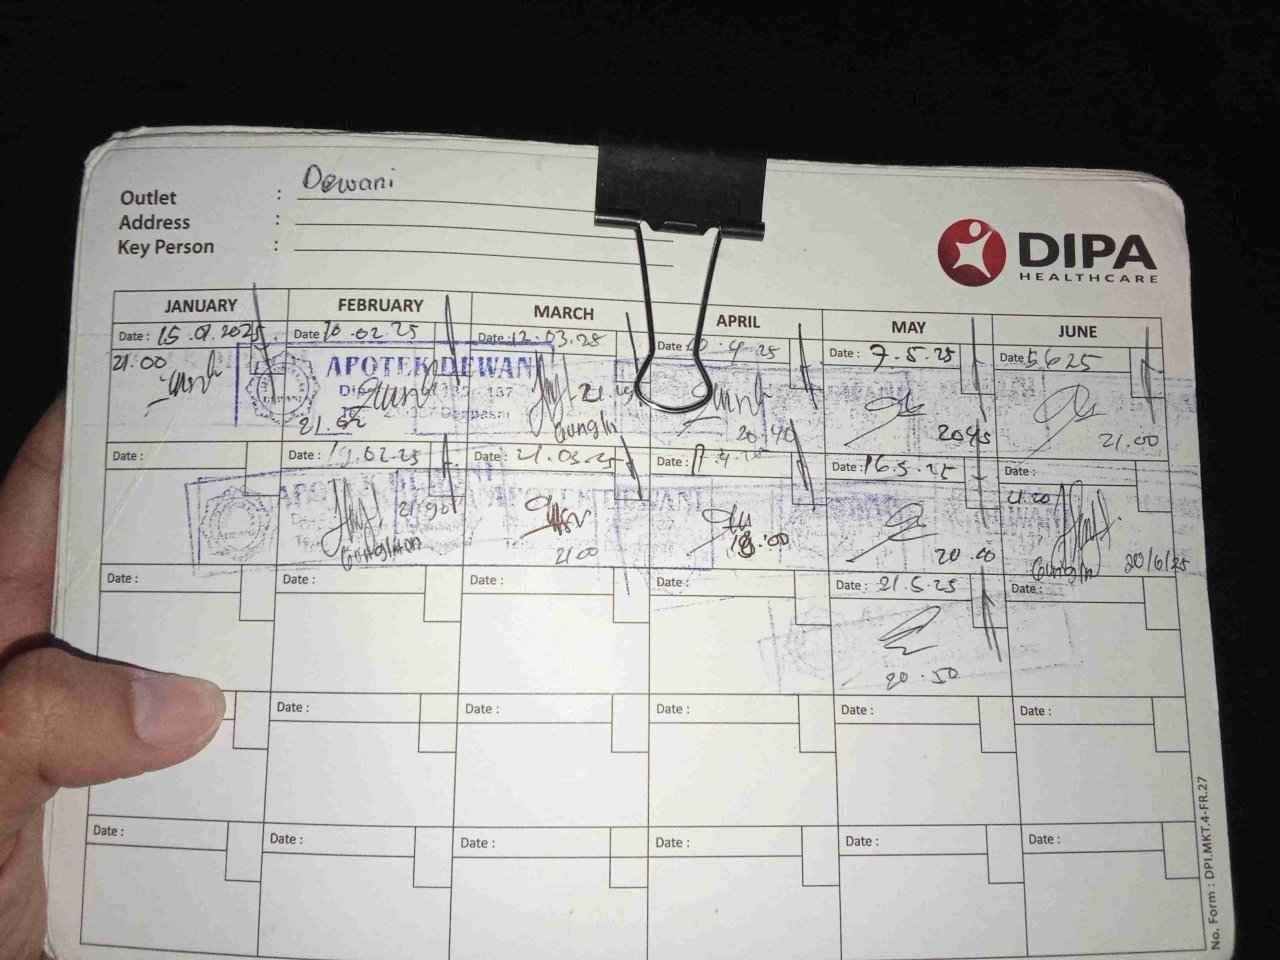 Outlet : Dewani
Address :
Key Person :
DIPA
HEALTHCARE
JANUARY FEBRUARY MARCH APRIL MAY JUNE
Date : 15.01.2025 Date 10.02.25 Date : 12.03.25 Date : 10.4.25 Date : 7.5.25 Date 5.6.25
21.00
APOTEK DEWANI
137
Denpasar
21.02 GungIn 20.40 2045 21.00
Date : Date : 19.02.25 Date : 21.03.25 Date : Date : 16.5.25 Date :
21.20
APOTEK DEWANI
21.00 19.00 20.00 GungIn 20/6/25
Date : Date : Date : Date : Date : 21.5.25 Date :
20.50
Date : Date : Date : Date : Date :
Date : Date : Date : Date : Date : Date :
No. Form : DPI.MKT.4-FR.27